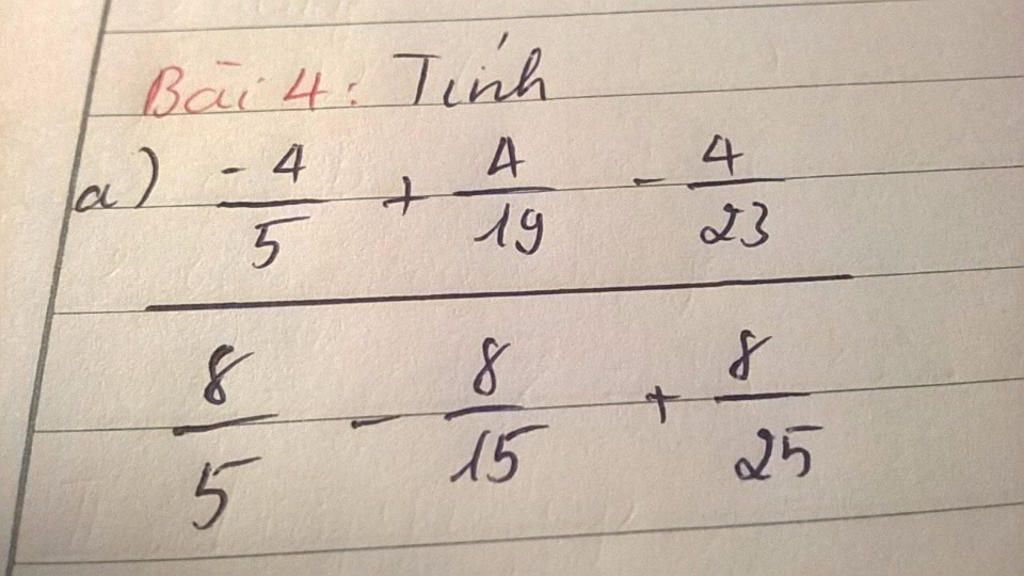 Bài 4: Tính
a) \frac{-4}{5} + \frac{4}{19} - \frac{4}{23}
\frac{8}{5} - \frac{8}{15} + \frac{8}{25}